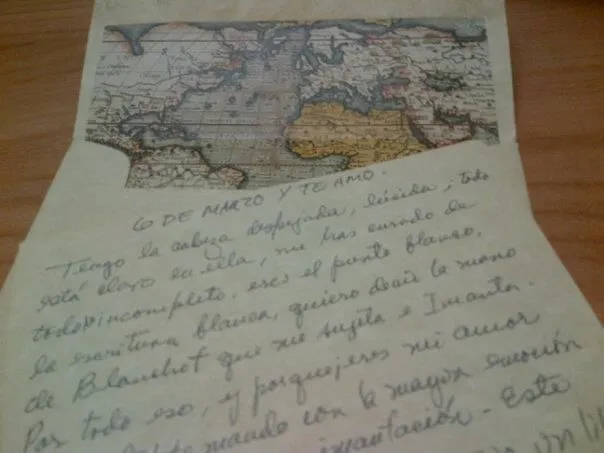 6 DE MARZO Y TE AMO.
Tengo la cabeza despejada, lúcida; todo
está claro en ella, me has curado de
todo lo incompleto, eres el punto blanco,
la escritura blanca, quiero decir la mano
de Blanchot que me sujeta e Imanta.
Por todo eso, y porque eres mi amor
te mando con la mayor emoción
imantación. Este
un